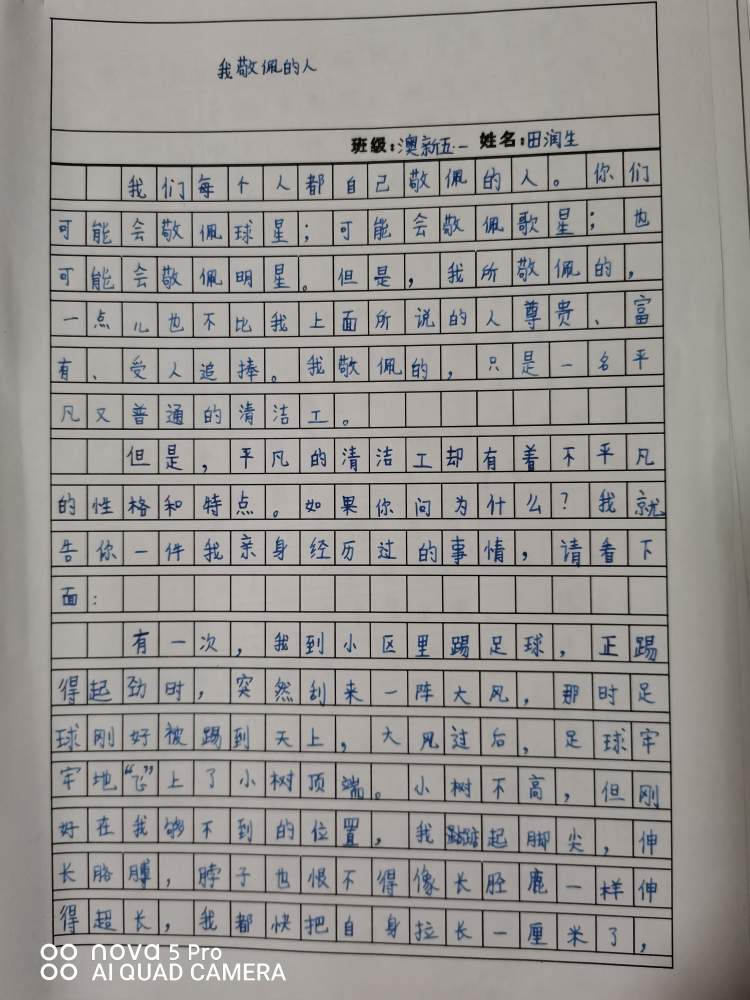 我敬佩的人
班级:澳新五一 姓名:田润生
我们每个人都自己敬佩的人。你们
可能会敬佩球星；可能会敬佩歌星；也
可能会敬佩明星。但是，我所敬佩的，
一点儿也不比我上面所说的人尊贵、富
有、受人追捧。我敬佩的，只是一名平
凡又普通的清洁工。
但是，平凡的清洁工却有着不平凡
的性格和特点。如果你问为什么？我就
告你一件我亲身经历过的事情，请看下
面：
有一次，我到小区里踢足球，正踢
得起劲时，突然刮来一阵大风，那时足
球刚好被踢到天上，大风过后，足球牢
牢地“飞”上了小树顶端。小树不高，但刚
好在我够不到的位置，我踮起脚尖，伸
长胳膊，脖子也恨不得像长胫鹿一样伸
得超长，我都快把自身拉长一厘米了，
nova 5 Pro
AI QUAD CAMERA